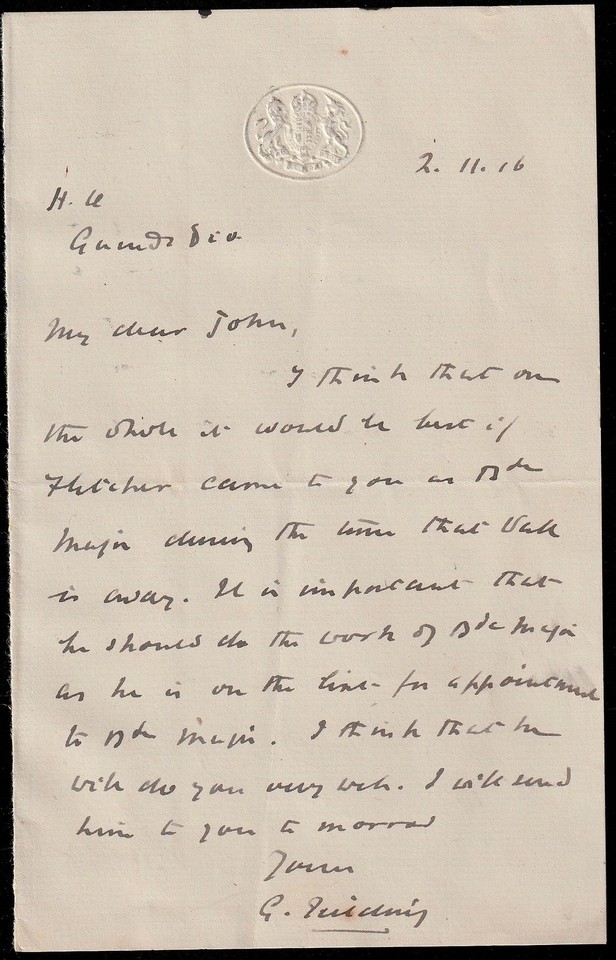 2. 11. 16
H. Q
Guards Div.
My dear John,
I think that on
the whole it would be best if
Fletcher came to you as Bde
Major during the time that
is away. It is important that
he should do the work of Bde Major
as he is on the list for appointment
to Bde Major. I think that he
will do you very well. I will send
him to you to morrow
Yours
G. Feilding